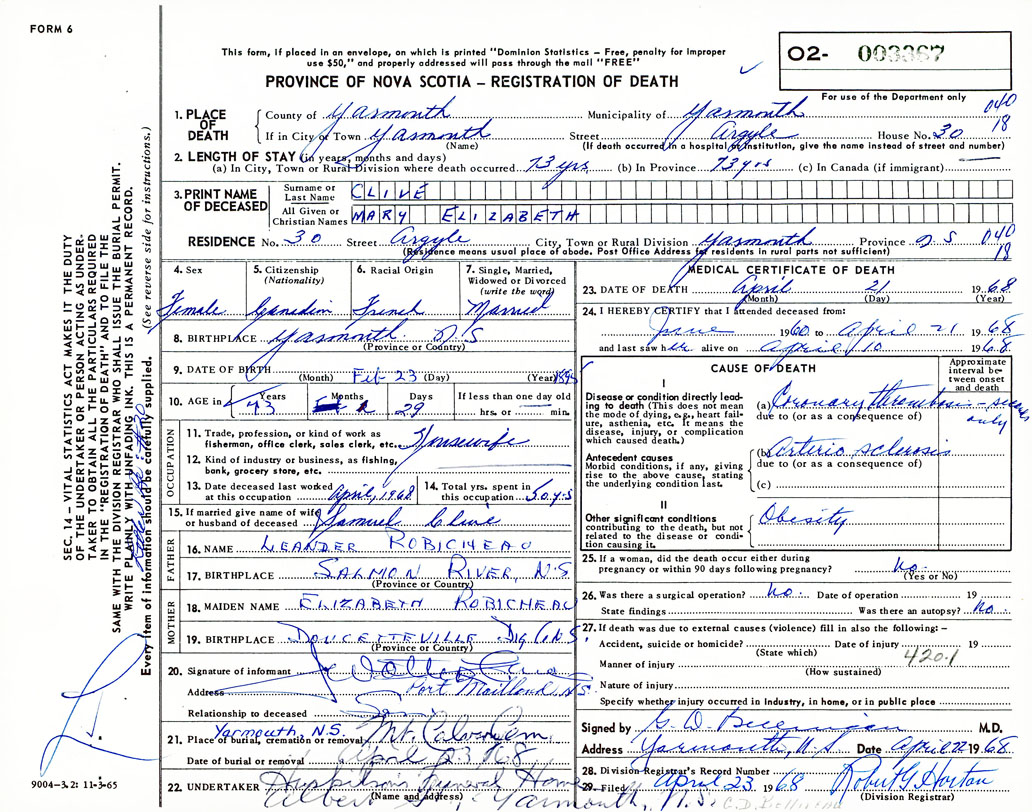 FORM 6
This form, if placed in an envelope, on which is printed "Dominion Statistics – Free, penalty for improper
use $50," and properly addressed will pass through the mail "FREE"
PROVINCE OF NOVA SCOTIA – REGISTRATION OF DEATH
O2- 003367
For use of the Department only
040
18
1. PLACE OF DEATH County of Yarmouth Municipality of Yarmouth
If in City or Town Yarmouth Street Argyle House No. 30
(Name) (If death occurred in a hospital or institution, give the name instead of street and number)
2. LENGTH OF STAY (in years, months and days)
(a) In City, Town or Rural Division where death occurred 73 yrs (b) In Province 73 yrs (c) In Canada (if immigrant) —
3. PRINT NAME OF DECEASED
Surname or Last Name CLIVE
All Given or Christian Names MARY ELIZABETH
RESIDENCE No. 30 Street Argyle City, Town or Rural Division Yarmouth Province N S 040
(Residence means usual place of abode. Post Office Address for residents in rural parts not sufficient) 18
4. Sex 5. Citizenship (Nationality) 6. Racial Origin 7. Single, Married, Widowed or Divorced (write the word)
Female Canadian French Married
8. BIRTHPLACE Yarmouth N.S
(Province or Country)
9. DATE OF BIRTH Feb 23 1895
(Month) (Day) (Year)
10. AGE in Years Months Days If less than one day old
73 2 29 hrs. or min.
OCCUPATION
11. Trade, profession, or kind of work as fisherman, office clerk, sales clerk, etc. Housewife
12. Kind of industry or business, as fishing, bank, grocery store, etc.
13. Date deceased last worked at this occupation April, 1968
14. Total yrs. spent in this occupation 50 yrs
15. If married give name of wife or husband of deceased Samuel Clive
FATHER
16. NAME LEANDER ROBICHEAU
17. BIRTHPLACE SALMON RIVER, N.S
(Province or Country)
MOTHER
18. MAIDEN NAME ELIZABETH ROBICHEAU
19. BIRTHPLACE DOUCETTEVILLE Dig. Co. N.S.
(Province or Country)
20. Signature of informant
Address Port Maitland, N.S
Relationship to deceased Son
21. Place of burial, cremation or removal Yarmouth, N.S. Mt. Calvary Cem.
Date of burial or removal April 23, 1968
22. UNDERTAKER Funeral Home
(Name and address) Albert Yarmouth, N.S.
MEDICAL CERTIFICATE OF DEATH
23. DATE OF DEATH April 21 1968
(Month) (Day) (Year)
24. I HEREBY CERTIFY that I attended deceased from:
June 1960 to April 21 1968
and last saw her alive on April 10 1968
CAUSE OF DEATH
Approximate interval between onset and death
I
Disease or condition directly leading to death (This does not mean the mode of dying, e.g., heart failure, asthenia, etc. It means the disease, injury, or complication which caused death.)
(a) Coronary thrombosis – only
due to (or as a consequence of)
Antecedent causes
Morbid conditions, if any, giving rise to the above cause, stating the underlying condition last.
(b) Arterio sclerosis
due to (or as a consequence of)
(c)
II
Other significant conditions contributing to the death, but not related to the disease or condition causing it.
Obesity
25. If a woman, did the death occur either during pregnancy or within 90 days following pregnancy? No
(Yes or No)
26. Was there a surgical operation? No Date of operation 19
State findings Was there an autopsy? No
27. If death was due to external causes (violence) fill in also the following: –
Accident, suicide or homicide? Date of injury 19
(State which) 420.1
Manner of injury
(How sustained)
Nature of injury
Specify whether injury occurred in Industry, in home, or in public place
Signed by G. D. M.D.
Address Yarmouth, N.S Date April 22 1968
28. Division Registrar's Record Number
29. Filed April 23 1968 Robert G Horton
(Division Registrar)
SEC. 14 – VITAL STATISTICS ACT MAKES IT THE DUTY
OF THE UNDERTAKER OR PERSON ACTING AS UNDER-
TAKER TO OBTAIN ALL THE PARTICULARS REQUIRED
IN THE "REGISTRATION OF DEATH" AND TO FILE THE
SAME WITH THE DIVISION REGISTRAR WHO SHALL ISSUE THE BURIAL PERMIT.
WRITE PLAINLY WITH UNFADING INK. THIS IS A PERMANENT RECORD.
Every item of information should be carefully supplied. (See reverse side for instructions.)
9004–3.2: 11-3-65